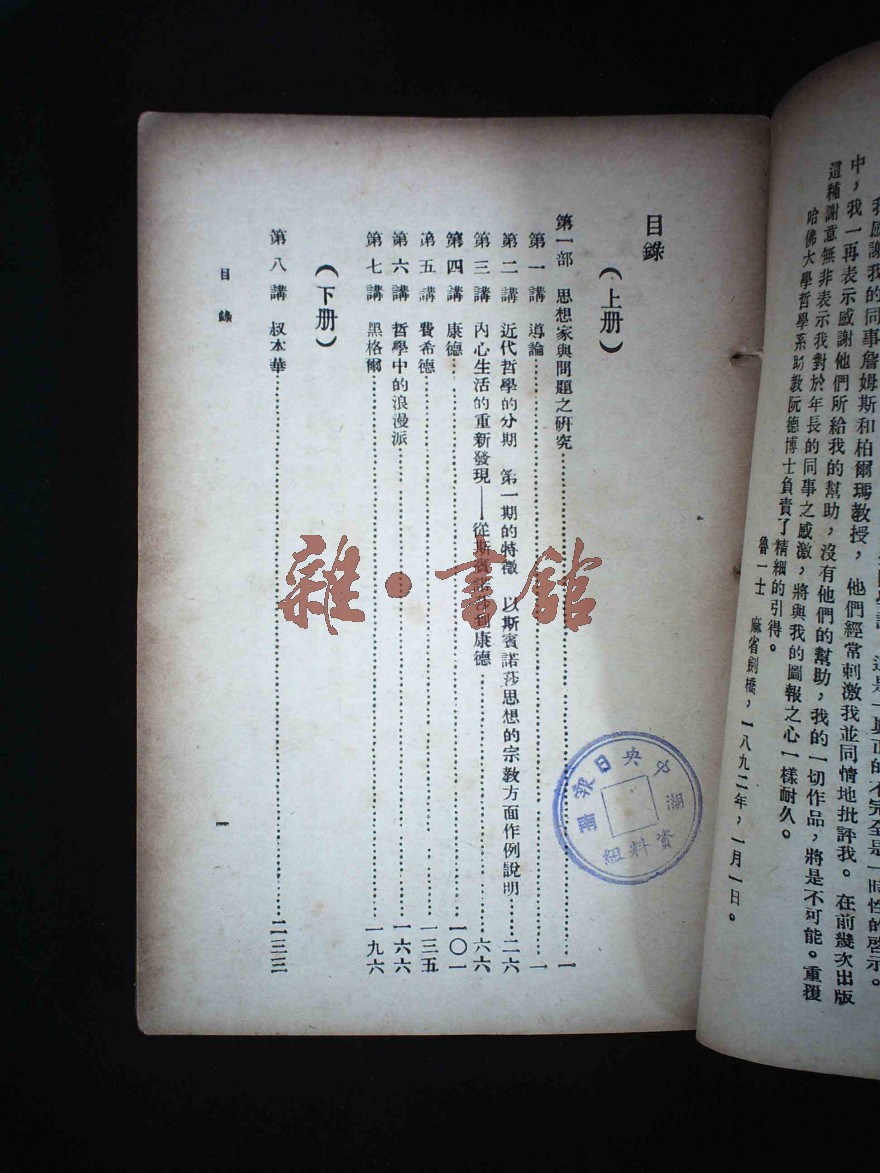 我感謝我的同事詹姆斯和柏爾瑪教授，他們經常刺激我並同情地批評我。在前幾次出版
中，我一再表示感謝他們所給我的幫助，沒有他們的幫助，我的一切作品，將是不可能。重複
這種謝意無非表示我對於年長的同事之感激，將與我的圖報之心一樣耐久。
哈佛大學哲學系助教阮德博士負責了精細的引得。
魯一士　麻省劍橋，一八九二年，一月一日。
目錄
（上册）
第一部　思想家與問題之研究……一
第一講　導論……一
第二講　近代哲學的分期　第一期的特徵　以斯賓諾莎思想的宗教方面作例說明……二六
第三講　內心生活的重新發現——從斯賓諾莎到康德……六六
第四講　康德……一〇一
第五講　費希德……一三五
第六講　哲學中的浪漫派……一六六
第七講　黑格爾……一九六
（下册）
第八講　叔本華……二三三
目錄
一
中央日報
湖南
資料組
雜·書館